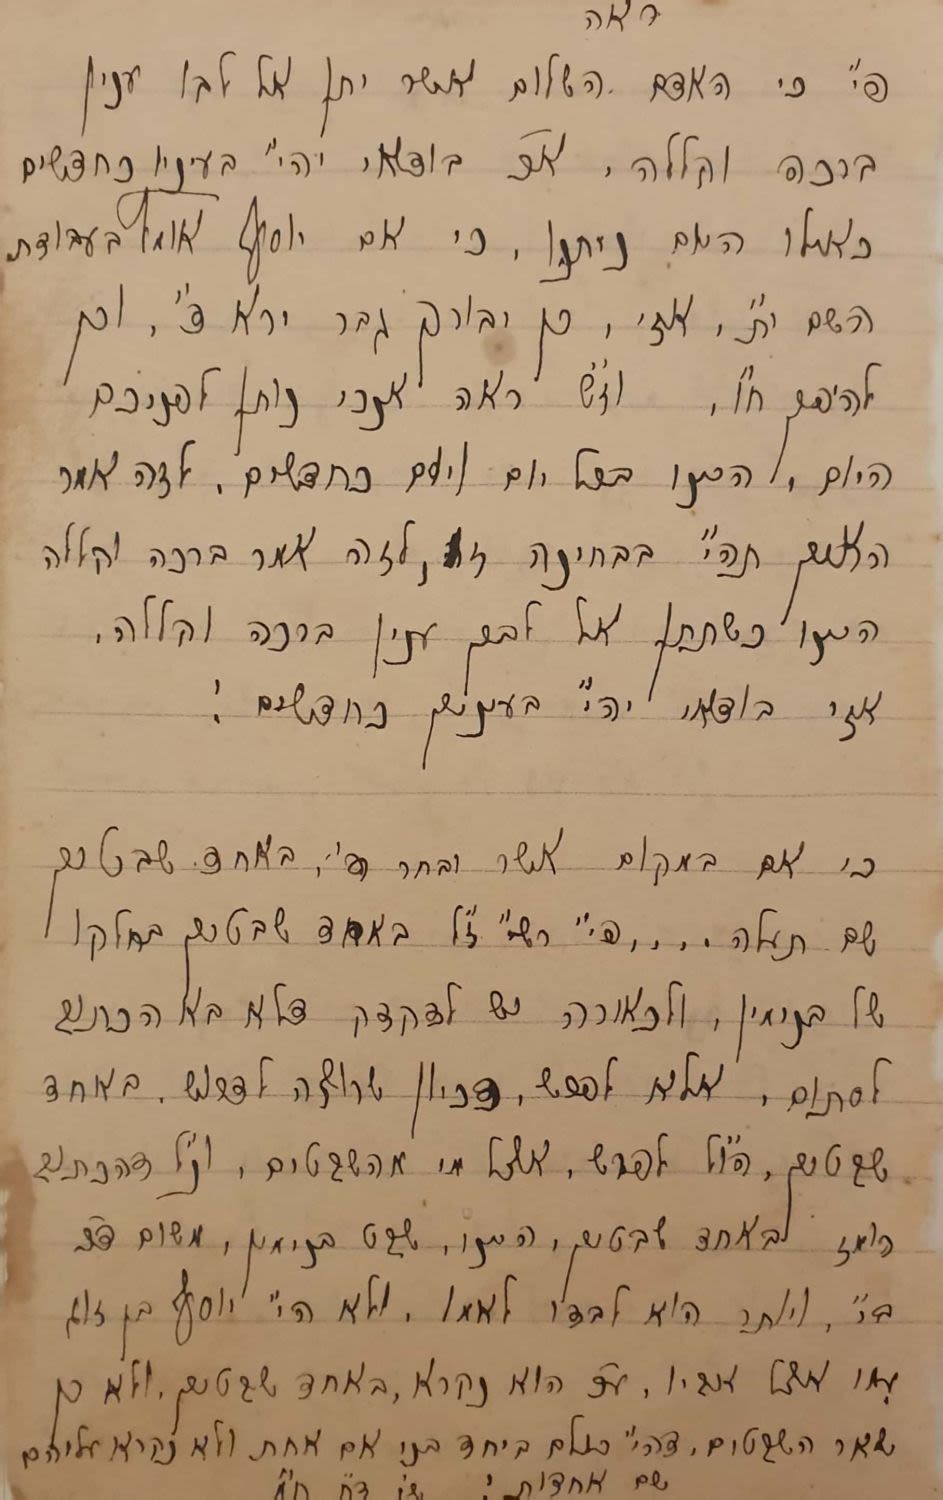 ראה
פי' כי האדם השלום אשר יתן אל לבו ענין
ברכה וקללה, אז בודאי יהי' בעיניו כחדשים
כאילו היום ניתנו, כי אם יוסיף אומץ בעבודת
השם ית', אזי, כן יבורך גבר ירא ד', וכן
להיפוך ח"ו, וז"ש ראה אנכי נותן לפניכם
היום, היינו בכל יום ויום כחדשים, לזה אמר
הראשון תהי' בבחינה זו, לזה אמר ברכה וקללה
היינו כשתתן אל לבך ענין ברכה וקללה,
אזי בודאי יהי' בעיניך כחדשים!
כי אם במקום אשר יבחר ה', באחד שבטיך
שם תעלה.... פי' רש"י ז"ל באחד שבטיך בחלקו
של בנימין, ולכאורה יש לדקדק דלא בא הכתוב
לסתום, אלא לפרש, דכיון שרוצה לפרש, באחד
שבטיך, הו"ל לפרש, אצל מי מהשבטים, וי"ל דהכתוב
רומז באחד שבטיך, היינו, שבט בנימין, משום
הוא לבדו לאמו, ולא הי' יוסף בן זוג
עמו אצל אביו, ע"כ הוא נקרא, באחד שבטיך, ולא כן
שאר השבטים, דהי' כולם ביחד בני אם אחת ולא נקרא עליהם
שם אחדות!